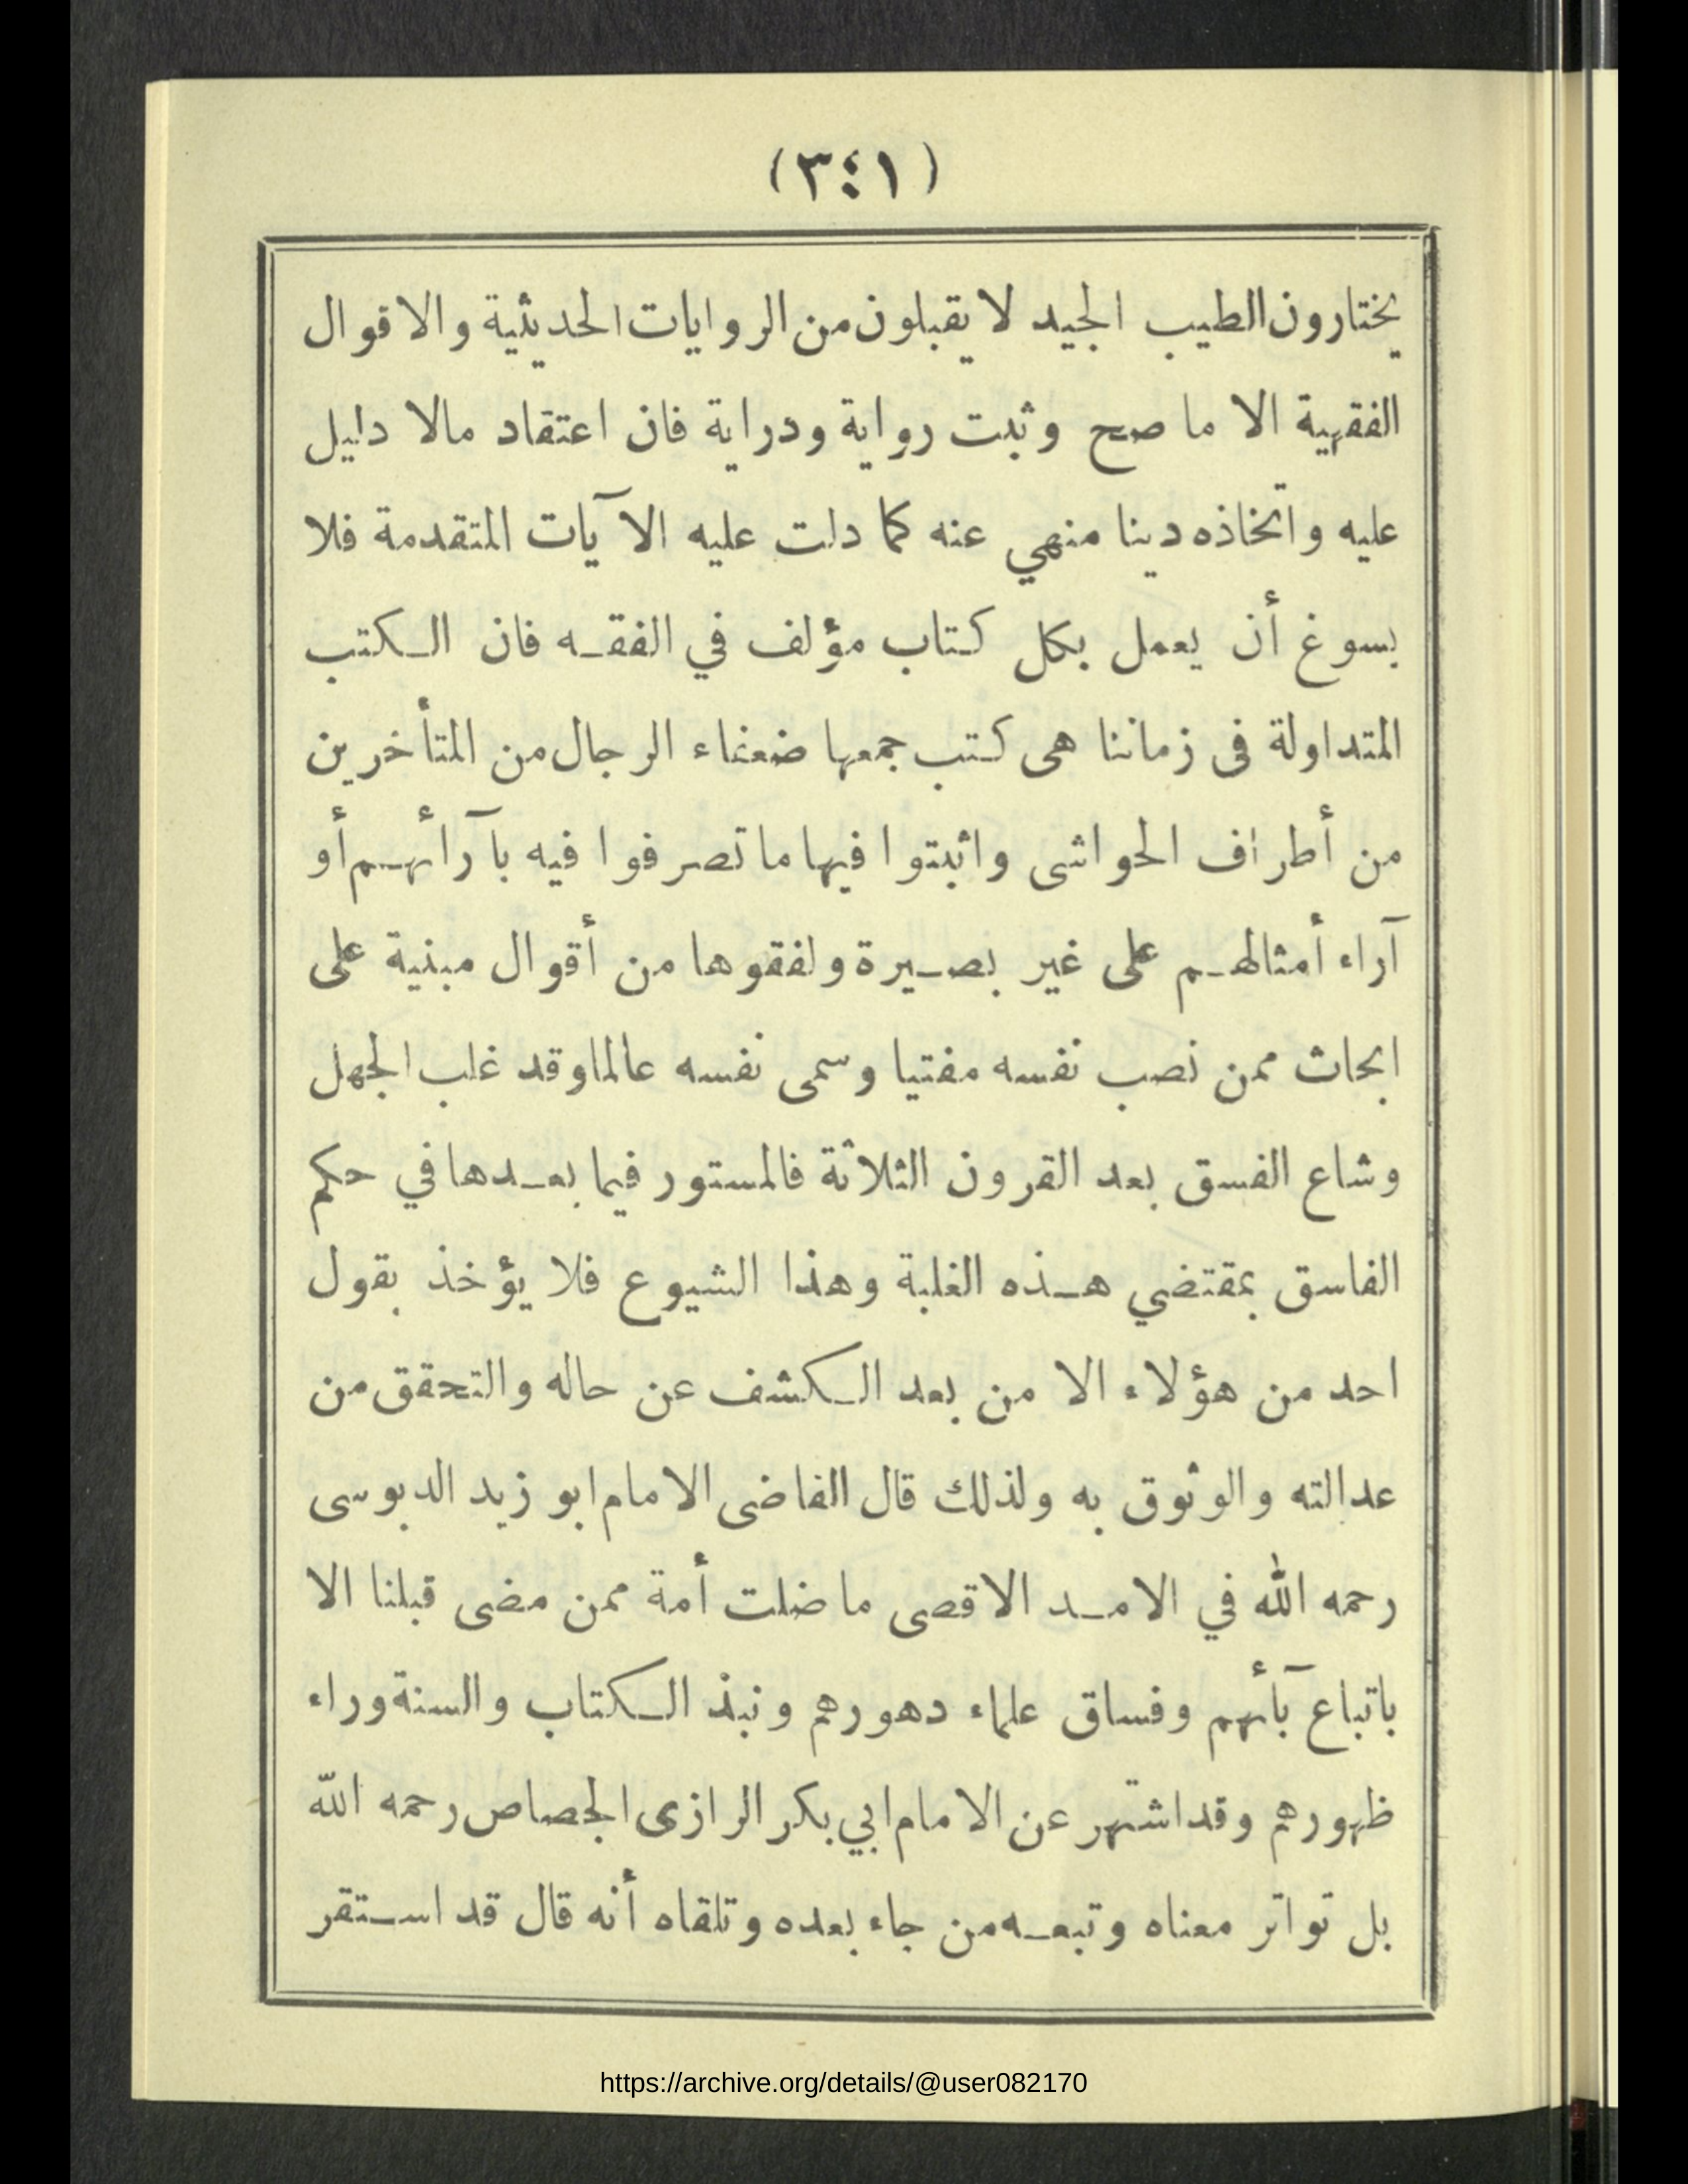 (٣٤١)
يختارون الطيب الجيد لا يقبلون من الروايات الحديثية والاقوال
الفقهية الا ما صح وثبت رواية ودراية فان اعتقاد مالا دليل
عليه واتخاذه دينا منهي عنه كما دلت عليه الآيات المتقدمة فلا
يسوغ أن يعمل بكل كتاب مؤلف في الفقه فان الكتب
المتداولة فى زماننا هى كتب جمعها ضعفاء الرجال من المتأخرين
من أطراف الحواشى واثبتوا فيها ما تصرفوا فيه بآرائهم أو
آراء أمثالهم على غير بصيرة ولفقوها من أقوال مبنية على
ابحاث ممن نصب نفسه مفتيا وسمى نفسه عالما وقد غلب الجهل
وشاع الفسق بعد القرون الثلاثة فالمستور فيما بعدها في حكم
الفاسق بمقتضي هذه الغلبة وهذا الشيوع فلا يؤخذ بقول
احد من هؤلاء الا من بعد الكشف عن حاله والتحقق من
عدالته والوثوق به ولذلك قال القاضى الامام ابو زيد الدبوسى
رحمه الله في الامد الاقصى ما ضلت أمة ممن مضى قبلنا الا
باتباع آبأئهم وفساق علماء دهورهم ونبذ الكتاب والسنة وراء
ظهورهم وقد اشتهر عن الامام ابي بكر الرازى الجصاص رحمه الله
بل تواتر معناه وتبعه من جاء بعده وتلقاه أنه قال قد استقر
https://archive.org/details/@user082170